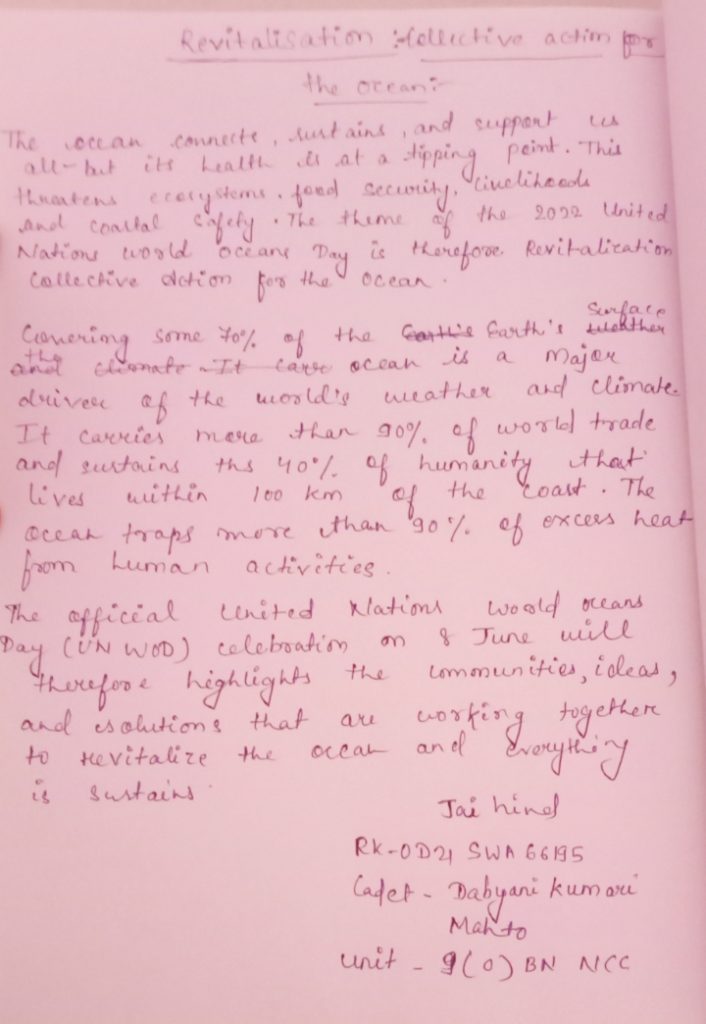 Revitalisation :- Collective action for
the ocean:-
The ocean connects, sustains, and support us
all - but its health is at a tipping point. This
threatens ecosystems, food security, livelihoods
and coastal safety. The theme of the 2022 United
Nations world oceans Day is therefore Revitalization
Collective Action for the Ocean.
Surface
Covering some 70% of the Earth's Earth's weather
the
and climate It carr ocean is a major
driver of the world's weather and climate.
It carries more than 90% of world trade
and sustains ths 40% of humanity that
lives within 100 km of the coast. The
ocean traps more than 90% of excess heat
from human activities.
The official United Nations World oceans
Day (UN WOD) celebration on 8 June will
therefore highlights the communities, ideas,
and solutions that are working together
to revitalize the ocean and everything
is sustains.
Jai hind
RK-OD21 SWA 66195
Cadet - Dabyani kumari
Mahto
unit - 9(O) BN NCC